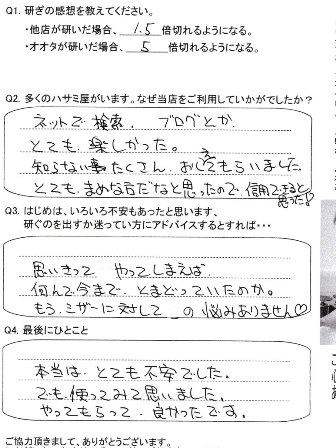 Q1. 研ぎの感想を教えてください。
・他店が研いだ場合、 1.5 倍切れるようになる。
・オオタが研いだ場合、 5 倍切れるようになる。
Q2. 多くのハサミ屋がいます。なぜ当店をご利用していかがでしたか?
ネットで 検索. ブログとか.
とても. 楽しかった。
知らない事たくさん. おしえてもらいました
とても. まめな方だなと思ったので. 信用できると
思った!
Q3. はじめは、いろいろ不安もあったと思います、
研ぐのを出すか迷ってい方にアドバイスするとすれば・・・
思いきって やってしまえば
何んで今まで. とまどっていたのか。
もう. ミザーに対して _ の悩みありません♡
Q4. 最後にひとこと
本当は. とても不安でした。
でも. 使ってみて思いました。
やってもらって. 良かったです。
ご協力頂きまして、ありがとうございます。